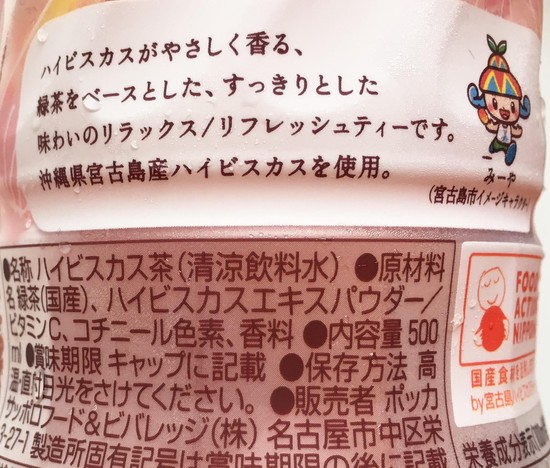 ハイビスカスがやさしく香る、
緑茶をベースとした、すっきりとした
味わいのリラックス/リフレッシュティーです。
沖縄県宮古島産ハイビスカスを使用。
みーや
(宮古島市イメージキャラクター
●名称 ハイビスカス茶(清涼飲料水) ●原材料
名 緑茶(国産)、ハイビスカスエキスパウダー/
ビタミンC、コチニール色素、香料 ●内容量 500
ml ●賞味期限 キャップに記載 ●保存方法 高
温・直射日光をさけてください。 ●販売者 ポッカ
サッポロフード&ビバレッジ(株) 名古屋市中区栄
3-27-1 製造所固有記号は賞味期限の後に記載
FOOD
ACTION
NIPPON
国産食材を
by宮古島
栄養成分表示